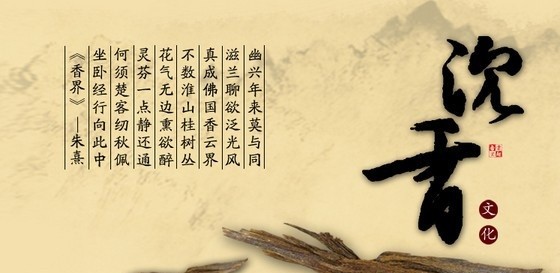 沉香
文化
幽兴年来莫与同
滋兰聊欲泛光风
真成佛国香云界
不数淮山桂树丛
花气无边熏欲醉
灵芬一点静还通
何须楚客纫秋佩
坐卧经行向此中
《香界》—朱熹